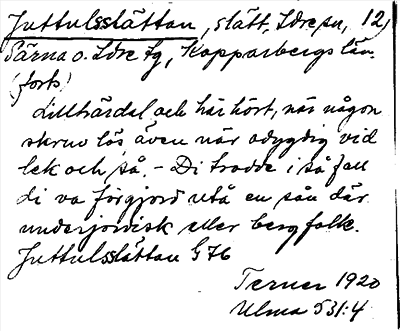 Juttulsslättan, slätt, Idre sn, 12,
Särna o. Idre tg, Kopparbergs län.
(forts)
Lillhärdal och här hört, när någon
skrev lös även när odygdig vid
lek och så. - Di trodde i så fall
di va förgjord utå en sån där
underjordisk eller bergfolk.
Juttulsslättan G76
Terner 1920
Ulma 531:4